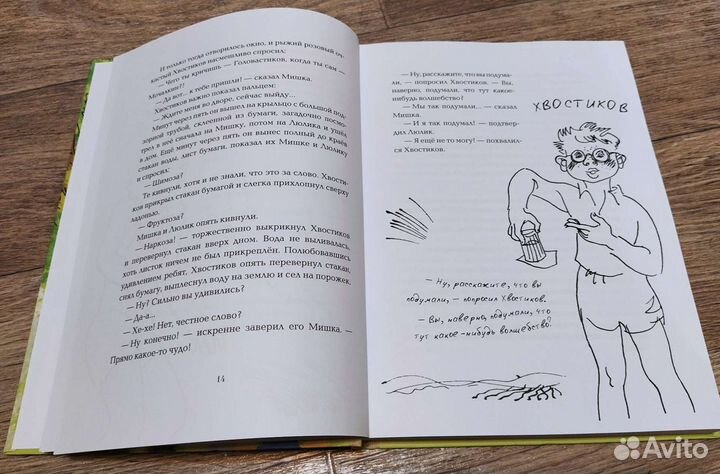 И только тогда отворилось окно, и рыжий розовый оч-
кастый Хвостиков насмешливо спросил:
— Чего ты кричишь — Головастиков, когда ты сам —
Мочалкин?
— Да вот.. к тебе пришли! — сказал Мишка.
Хвостиков важно показал пальцем:
— Ждите меня во дворе, сейчас выйду...
Минут через пять он вышел на крыльцо с большой под-
зорной трубой, склеенной из бумаги, загадочно посмо-
трел в неё сначала на Мишку, потом на Люлика и ушёл
в дом. Ещё минут через пять он вынес полный до краёв
стакан воды, лист бумаги, показал их Мишке и Люлику
и спросил:
— Шимоза?
Те кивнули, хотя и не знали, что это за слово. Хвости-
ков прикрыл стакан бумагой и слегка прихлопнул сверху
ладонью.
— Фруктоза?
Мишка и Люлик опять кивнули.
— Наркоза! — торжественно выкрикнул Хвостиков
и перевернул стакан вверх дном. Вода не выливалась,
хоть листок ничем не был прикреплён. Полюбовавшись
удивлением ребят, Хвостиков опять перевернул стакан,
снял бумагу, выплеснул воду на землю и сел на порожек.
— Ну? Сильно вы удивились?
— Да-а...
— Хе-хе! Нет, честное слово?
— Ну конечно! — искренне заверил его Мишка. —
Прямо какое-то чудо!
14
— Ну, расскажите, что вы подума-
ли, — попросил Хвостиков. — Вы,
наверно, подумали, что тут какое-
нибудь волшебство?
— Мы так подумали... — сказал
Мишка.
— И я так подумал! — подтвер-
дил Люлик.
— Я ещё не то могу! — похвалил-
ся Хвостиков.
ХВОСТИКОВ
— Ну, расскажите, что вы
подумали, — попросил Хвостиков.
— Вы, наверно, подумали, что
тут какое-нибудь волшебство?
Avito